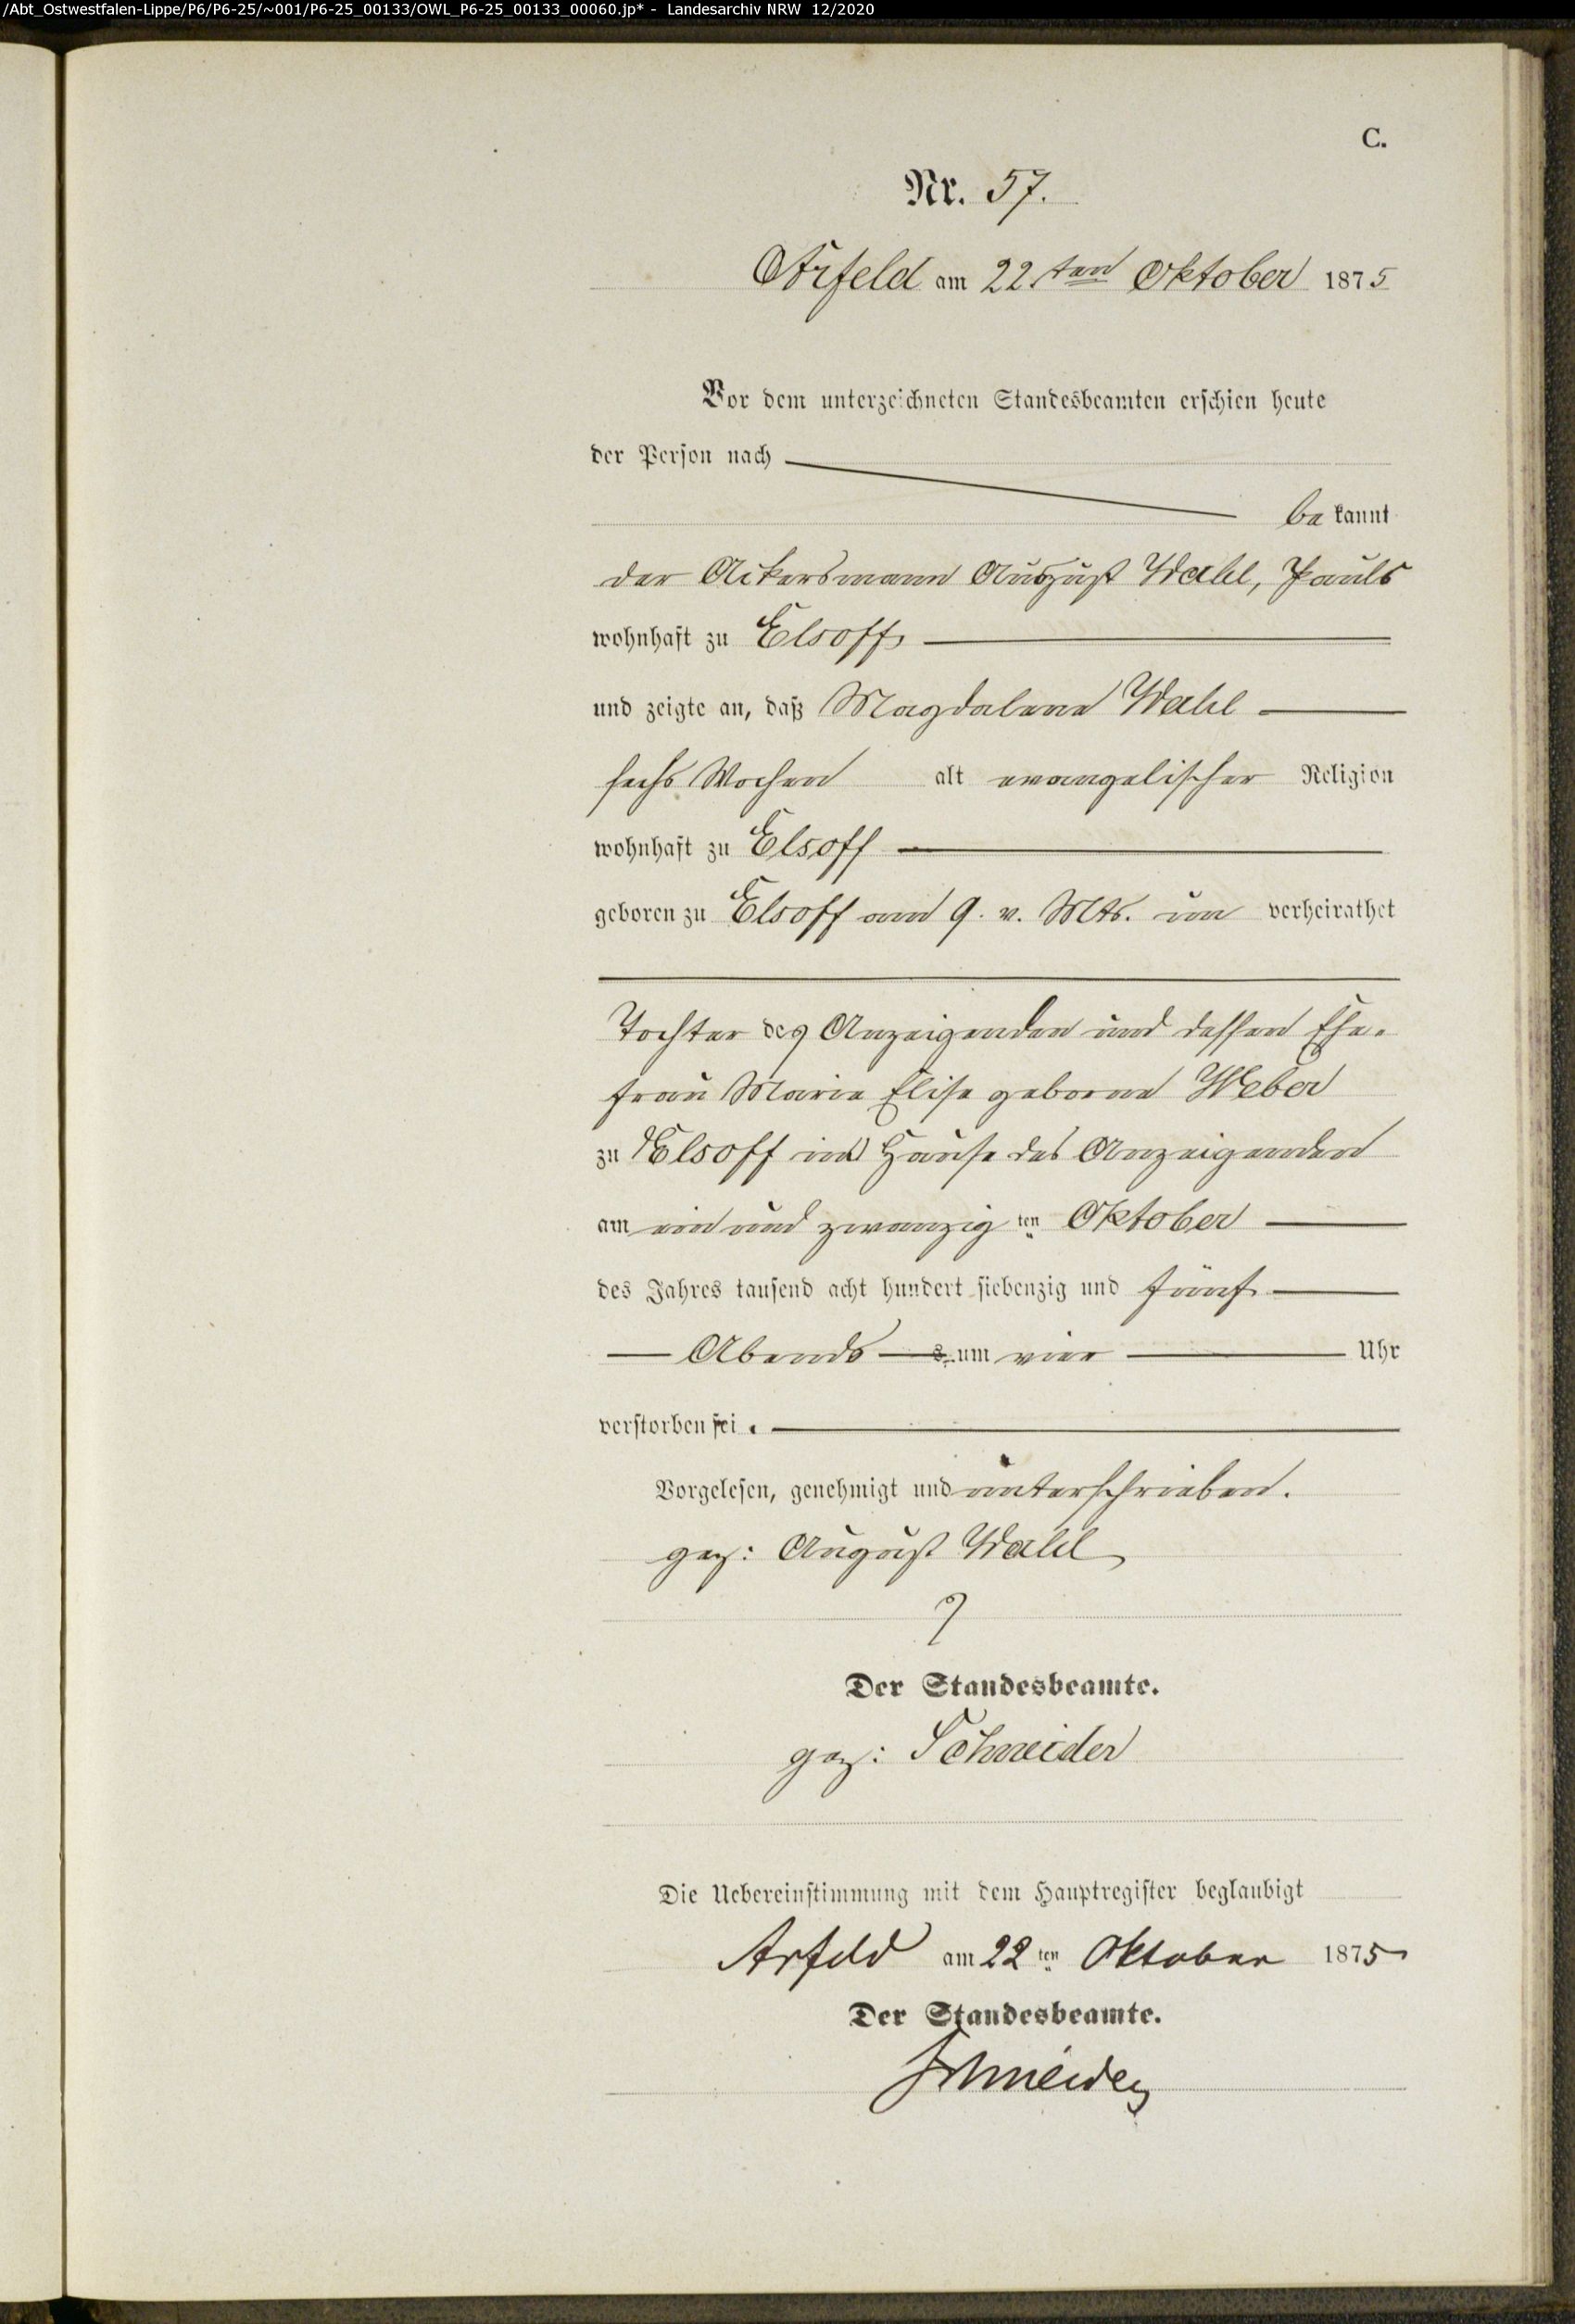 /Abt_Ostwestfalen-Lippe/P6/P6-25/~001/P6-25_00133/OWL_P6-25_00133_00060.jp* - Landesarchiv NRW 12/2020
C.
Nr. 57.
Arfeld am 22ten Oktober 1875
Vor dem unterzeichneten Standesbeamten erschien heute
der Person nach
bekannt
der Ackersmann August Wahl, Pauls
wohnhaft zu Elsoff
und zeigte an, daß Magdalene Wahl
sechs Wochen alt evangelischer Religion
wohnhaft zu Elsoff
geboren zu Elsoff am 9. v. Mts. un verheirathet
Tochter des Anzeigenden und dessen Ehe-
frau Marie Elise geborne Weber
zu Elsoff im Hause des Anzeigenden
am ein und zwanzig ten Oktober
des Jahres tausend acht hundert siebenzig und fünf
Abends s um vier Uhr
verstorben sei.
Vorgelesen, genehmigt und unterschrieben.
gez: August Wahl
Der Standesbeamte.
gez: Schneider
Die Uebereinstimmung mit dem Hauptregister beglaubigt
Arfeld am 22 ten Oktober 1875
Der Standesbeamte.
Schneider